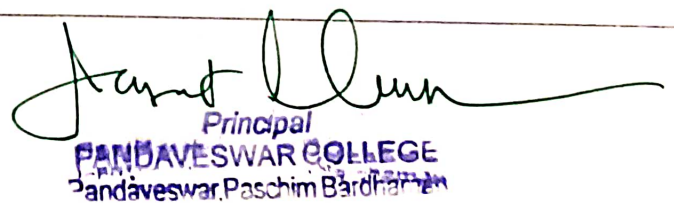 Principal
PANDAVESWAR COLLEGE
Pandaveswar, Paschim Bardhaman